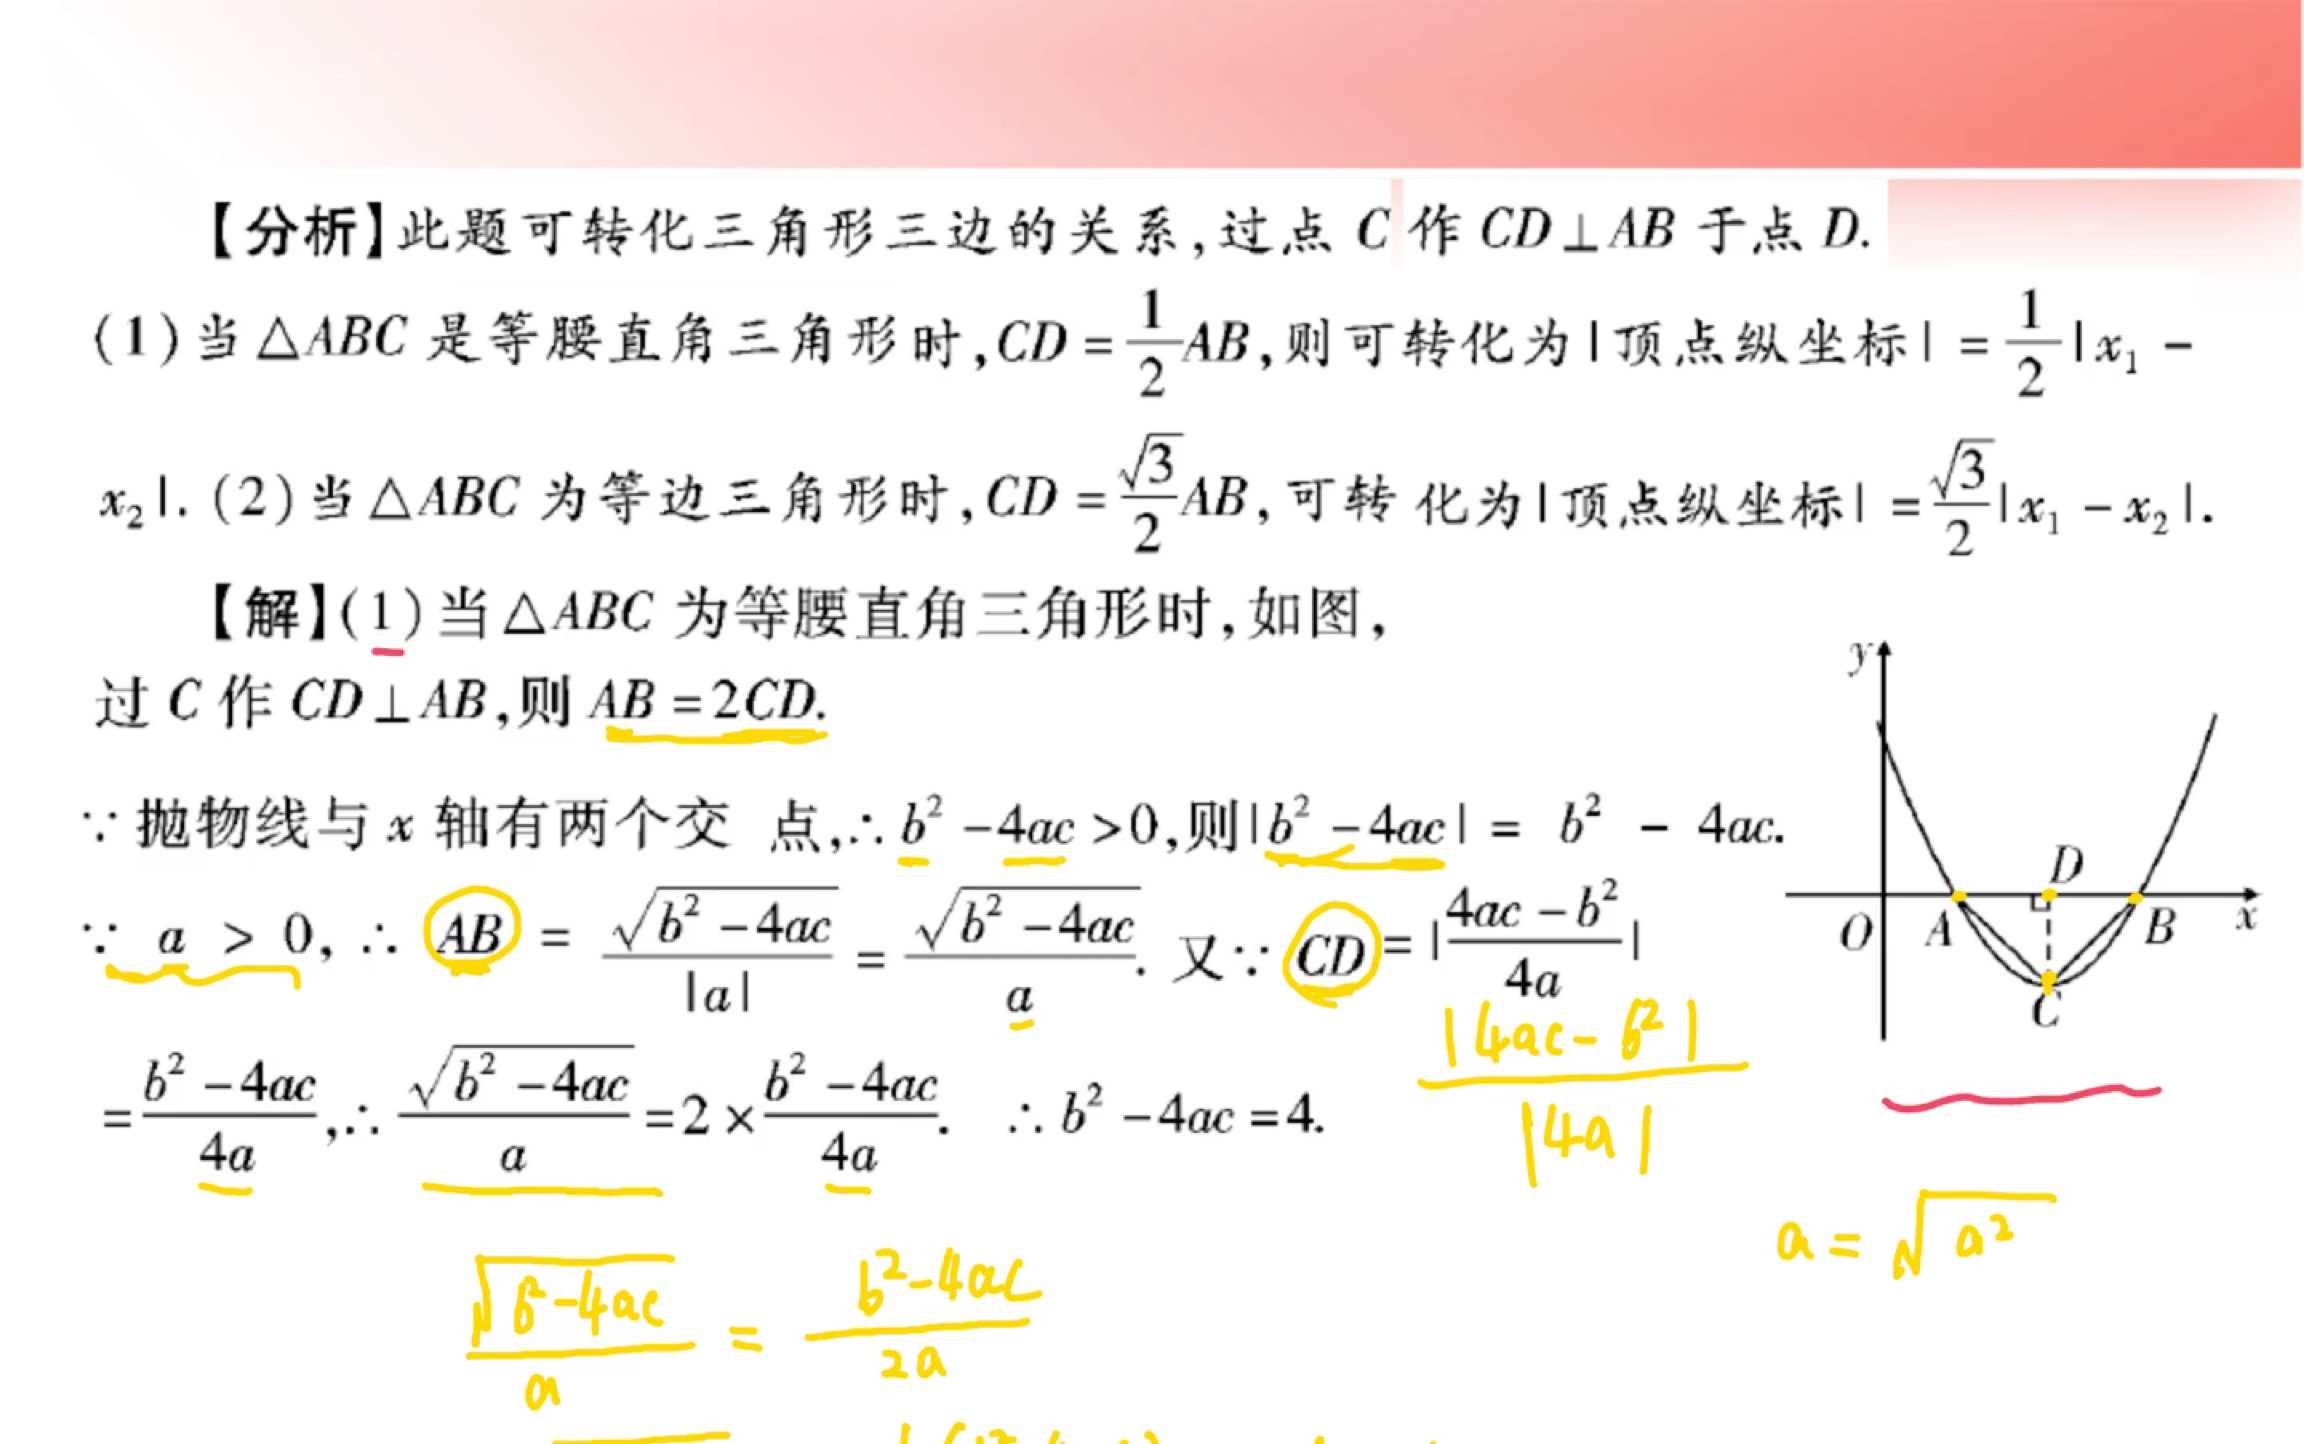 【分析】此题可转化三角形三边的关系,过点 C 作 CD⊥AB 于点 D.
(1)当△ABC 是等腰直角三角形时,CD=\frac{1}{2}AB,则可转化为|顶点纵坐标|=\frac{1}{2}|x₁-
x₂|.(2)当△ABC 为等边三角形时,CD=\frac{√3}{2}AB,可转化为|顶点纵坐标|=\frac{√3}{2}|x₁-x₂|.
【解】(1)当△ABC 为等腰直角三角形时,如图,
过 C 作 CD⊥AB,则 AB=2CD.
∵抛物线与 x 轴有两个交点,∴b²-4ac>0,则|b²-4ac|=b²-4ac.
∵a>0,∴AB=\frac{\sqrt{b²-4ac}}{|a|}=\frac{\sqrt{b²-4ac}}{a}.又∵CD=|\frac{4ac-b²}{4a}|
=\frac{b²-4ac}{4a},∴\frac{\sqrt{b²-4ac}}{a}=2×\frac{b²-4ac}{4a}. ∴b²-4ac=4.
y
D
O A B x
C
\frac{|4ac-b²|}{|4a|}
a=\sqrt{a²}
\frac{\sqrt{b²-4ac}}{a}=\frac{b²-4ac}{2a}